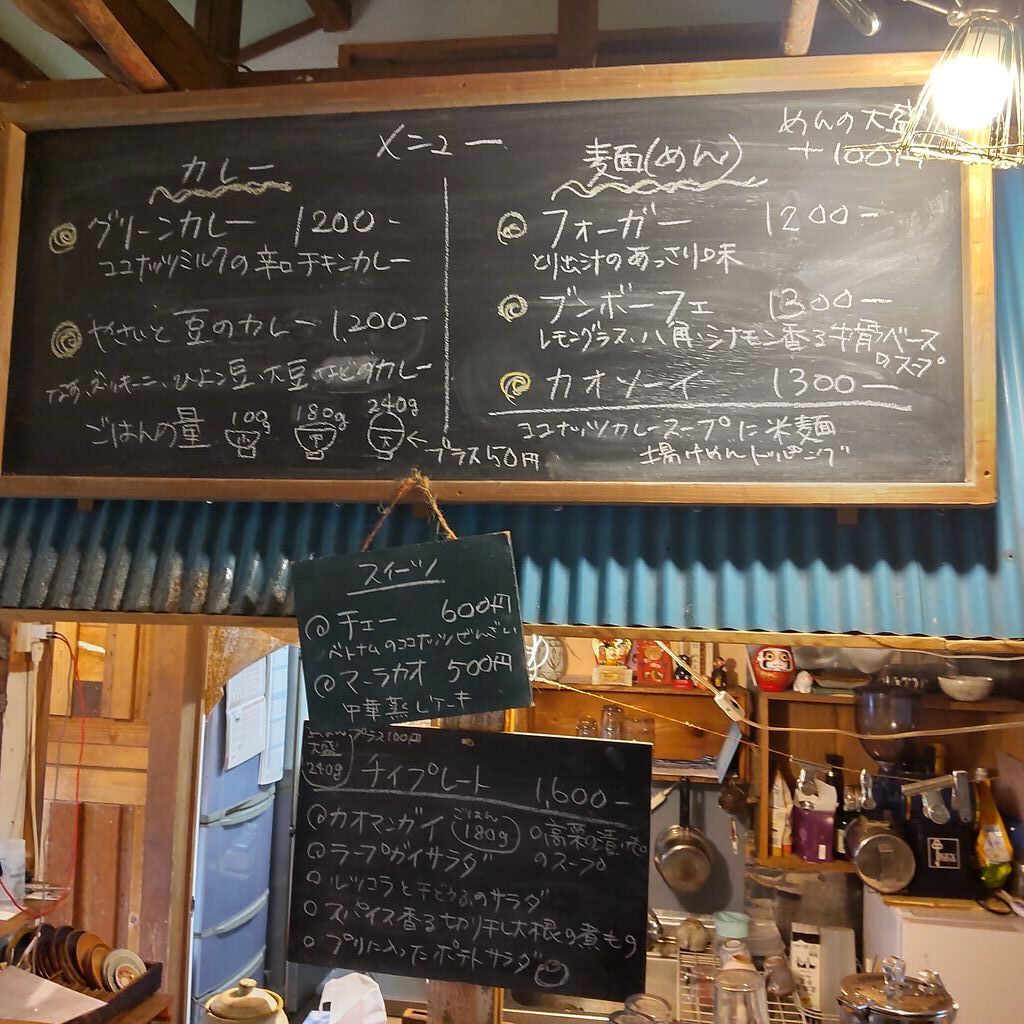 メニュー
カレー
グリーンカレー 1200-
ココナッツミルクの辛口チキンカレー
やさいと豆のカレー 1,200-
なす、ズッキーニ、ひよこ豆、大豆、などのカレー
ごはんの量 100g 180g 240g
小 中 大 ← プラス50円
めんの大盛
+100円
麺(めん)
フォーガー 1200-
とり出汁のあっさり味
ブンボーフェ 1300-
レモングラス、八角、シナモン香る牛骨ベース
のスープ
カオソーイ 1300-
ココナッツカレースープに米麺
揚げめんトッピング
スイーツ
チェー 600円
ベトナムのココナッツぜんざい
マーラカオ 500円
中華蒸しケーキ
大盛 プラス100円
240g
チイプレート 1,600-
カオマンガイ ごはん 180g
ラープガイサラダ
のスープ
ルッコラと干どうふのサラダ
スパイス香る切り干し大根の煮もの
ブリに入ったポテトサラダ